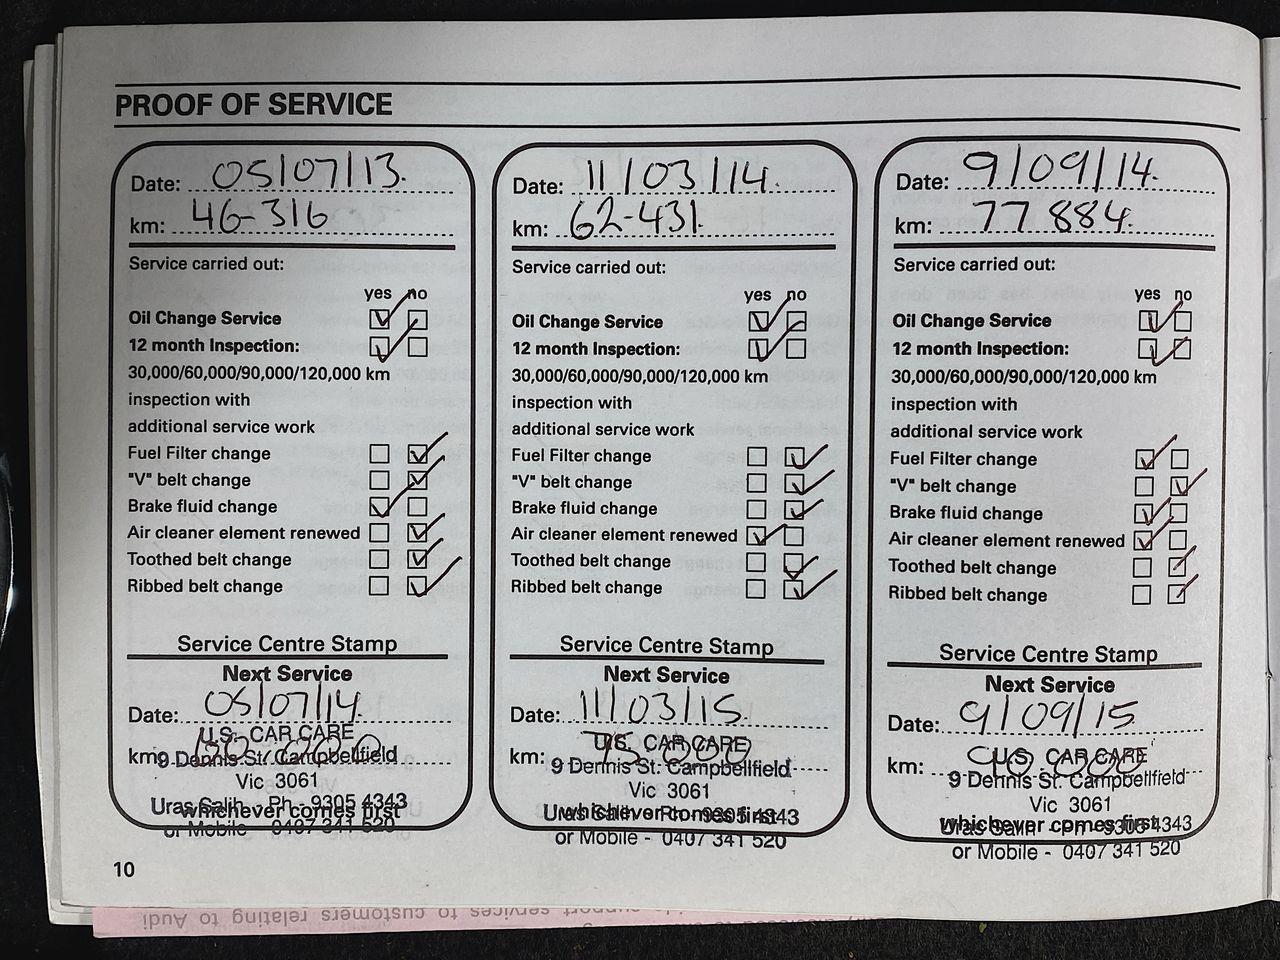 PROOF OF SERVICE
Date: 05/07/13.
km: 46-316
Service carried out:
yes no
Oil Change Service
12 month Inspection:
30,000/60,000/90,000/120,000 km
inspection with
additional service work
Fuel Filter change
"V" belt change
Brake fluid change
Air cleaner element renewed
Toothed belt change
Ribbed belt change
Service Centre Stamp
Next Service
Date: 05/07/14.
km:
U.S. CAR CARE
9 Dennis St. Campbellfield
Vic 3061
Uras Salih - Ph - 9305 4343
whichever comes first
or Mobile - 0407 341 520
Date: 11/03/14.
km: 62-431.
Service carried out:
yes no
Oil Change Service
12 month Inspection:
30,000/60,000/90,000/120,000 km
inspection with
additional service work
Fuel Filter change
"V" belt change
Brake fluid change
Air cleaner element renewed
Toothed belt change
Ribbed belt change
Service Centre Stamp
Next Service
Date: 11/03/15.
km:
U.S. CAR CARE
9 Dennis St. Campbellfield
Vic 3061
Uras Salih - Ph - 9305 4343
whichever comes first
or Mobile - 0407 341 520
Date: 9/09/14.
km: 77 884.
Service carried out:
yes no
Oil Change Service
12 month Inspection:
30,000/60,000/90,000/120,000 km
inspection with
additional service work
Fuel Filter change
"V" belt change
Brake fluid change
Air cleaner element renewed
Toothed belt change
Ribbed belt change
Service Centre Stamp
Next Service
Date: 9/09/15.
km:
U.S. CAR CARE
9 Dennis St. Campbellfield
Vic 3061
Uras Salih - Ph - 9305 4343
whichever comes first
or Mobile - 0407 341 520
10
support services to customers relating to Audi